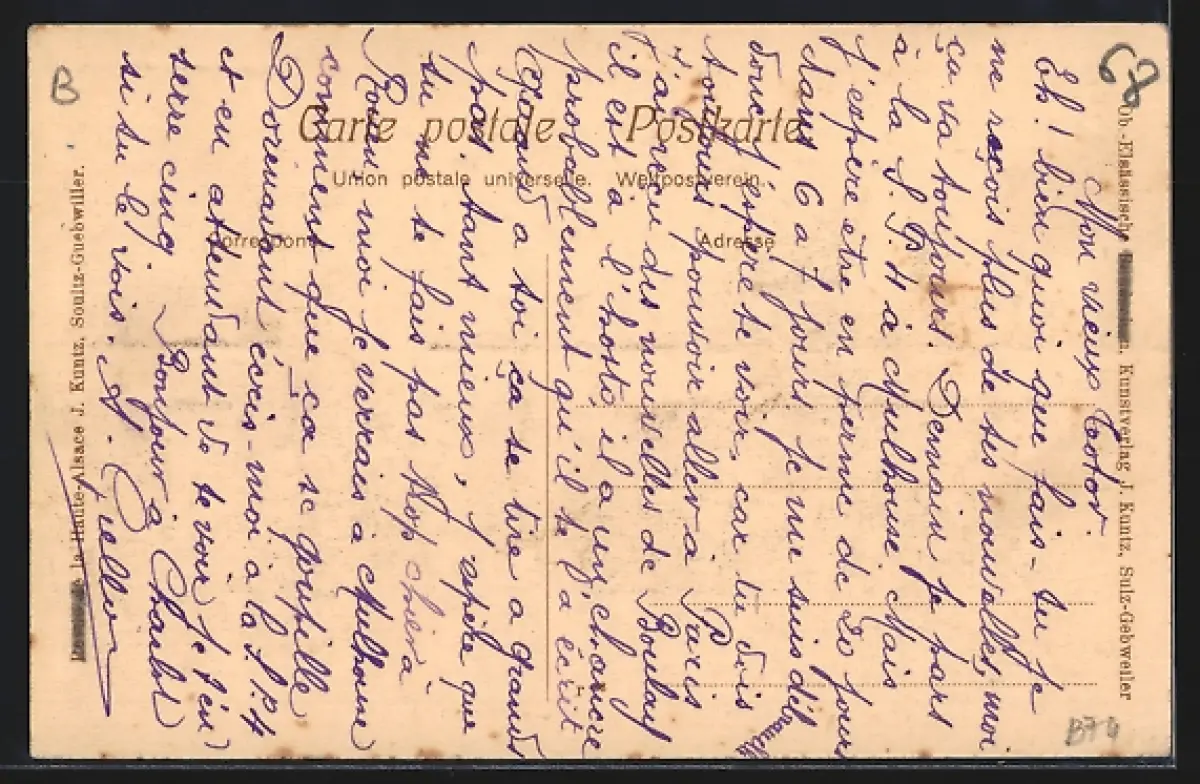 Mon vieux Totor.
Eh! bien quoi que fais-tu je
ne reçois plus de tes nouvelles, moi
ça va toujours. Demain je pars
à la S.P.4 à Mulhouse Mais
j'espère être en perme de 20 jours
dans 6 a 7 jours je me suis dit
donc j'espère te voir, car tu dois
toujours pouvoir aller à Paris
j'ai reçu des nouvelles de Boulay
il est à l'hosto, il a un chancre
probablement qu'il te l'a écrit
Quand a toi ça se tire a grands
pas. tant mieux, j'espère que
tu ne te fais pas trop chier à
Rouen, moi je verrais à Mulhouse
comment que ça se goupille
Dorénavant écris-moi à la S.P.4
et en attendant de te voir je t'en
serre cinq Bonjour à Charlot
si tu le vois. A.
Carte postale Postkarte
Union postale universelle. Weltpostverein.
Correspond
Adresse
Ob.-Elsässische Kunstverlag J. Kuntz, Sulz-Gebweiler
La Haute-Alsace J. Kuntz, Soultz-Guebwiller.
68
B
B70